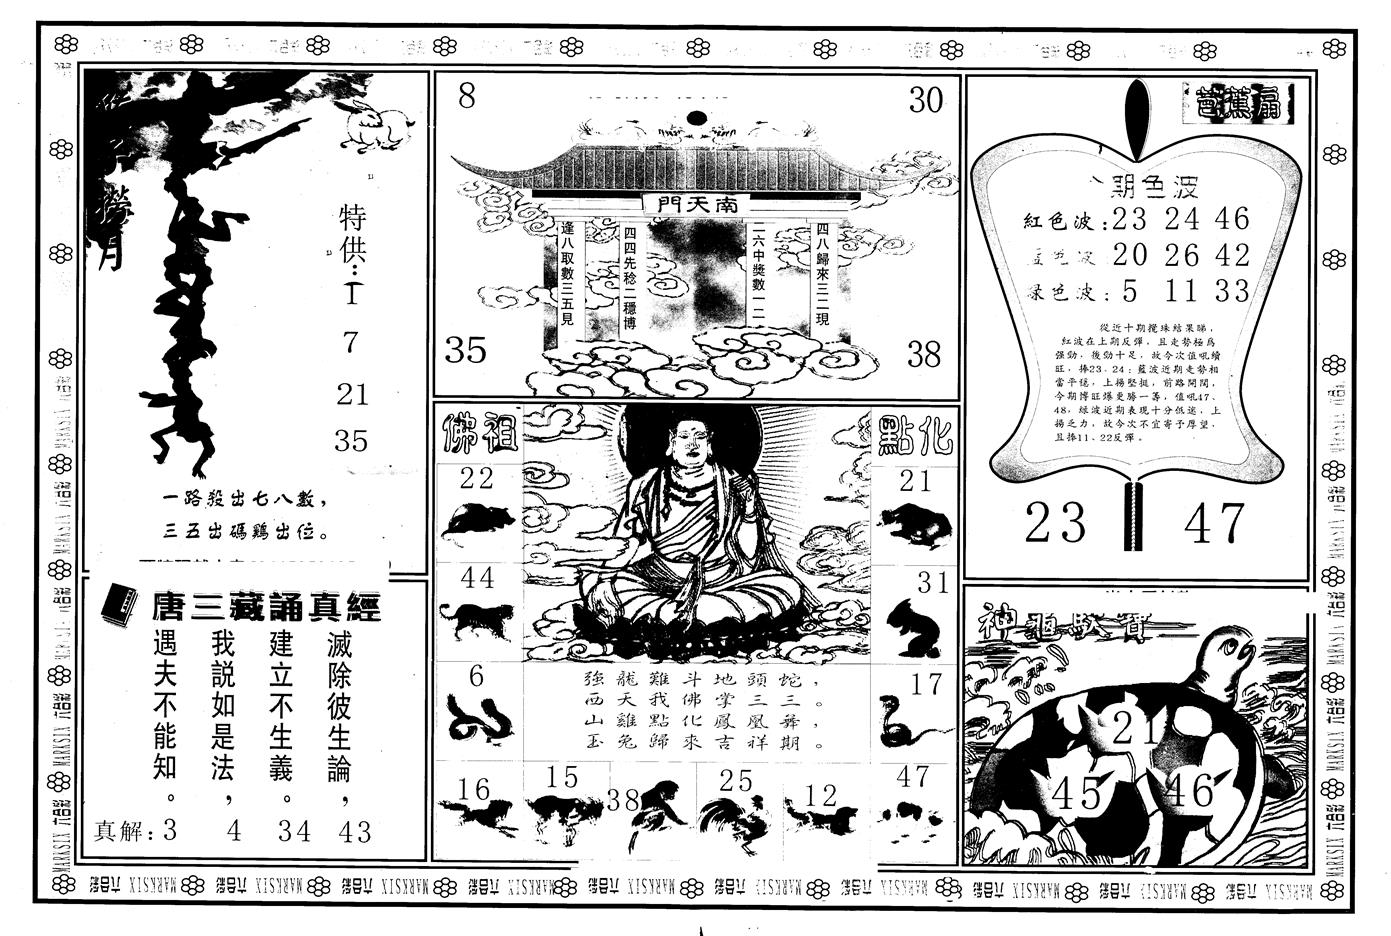 撈月
特供：1
7
21
35
一路殺出七八數，
三五出碼鷄出位。
8
30
南天門
逢八取數三五見
四四先稔二穩博
二六中獎數一二
四八歸來三二現
35
38
芭蕉扇
期色波
紅色波：23 24 46
藍色波 20 26 42
綠色波：5 11 33
從近十期攪珠結果睇，
紅波在上期反彈，且走勢極為
强勁，後勁十足，故今次值吼續
旺，捧23、24；藍波近期走勢相
當平穩，上揚堅挺，前路開闊，
今期博旺爆更勝一籌，值吼47、
48，綠波近期表現十分低迷，上
揚乏力，故今次不宜寄予厚望，
且捧11、22反彈。
23
47
佛祖
點化
22
44
6
21
31
17
強龍難斗地頭蛇，
西天我佛掌三三。
山雞點化鳳凰舞，
玉兔歸來吉祥期。
16
15
38
25
12
47
唐三藏誦真經
滅除彼生論，
建立不生義。
我説如是法，
遇夫不能知。
真解：3 4 34 43
神龜馱寶
21
45
46
六合彩 MARKSIX